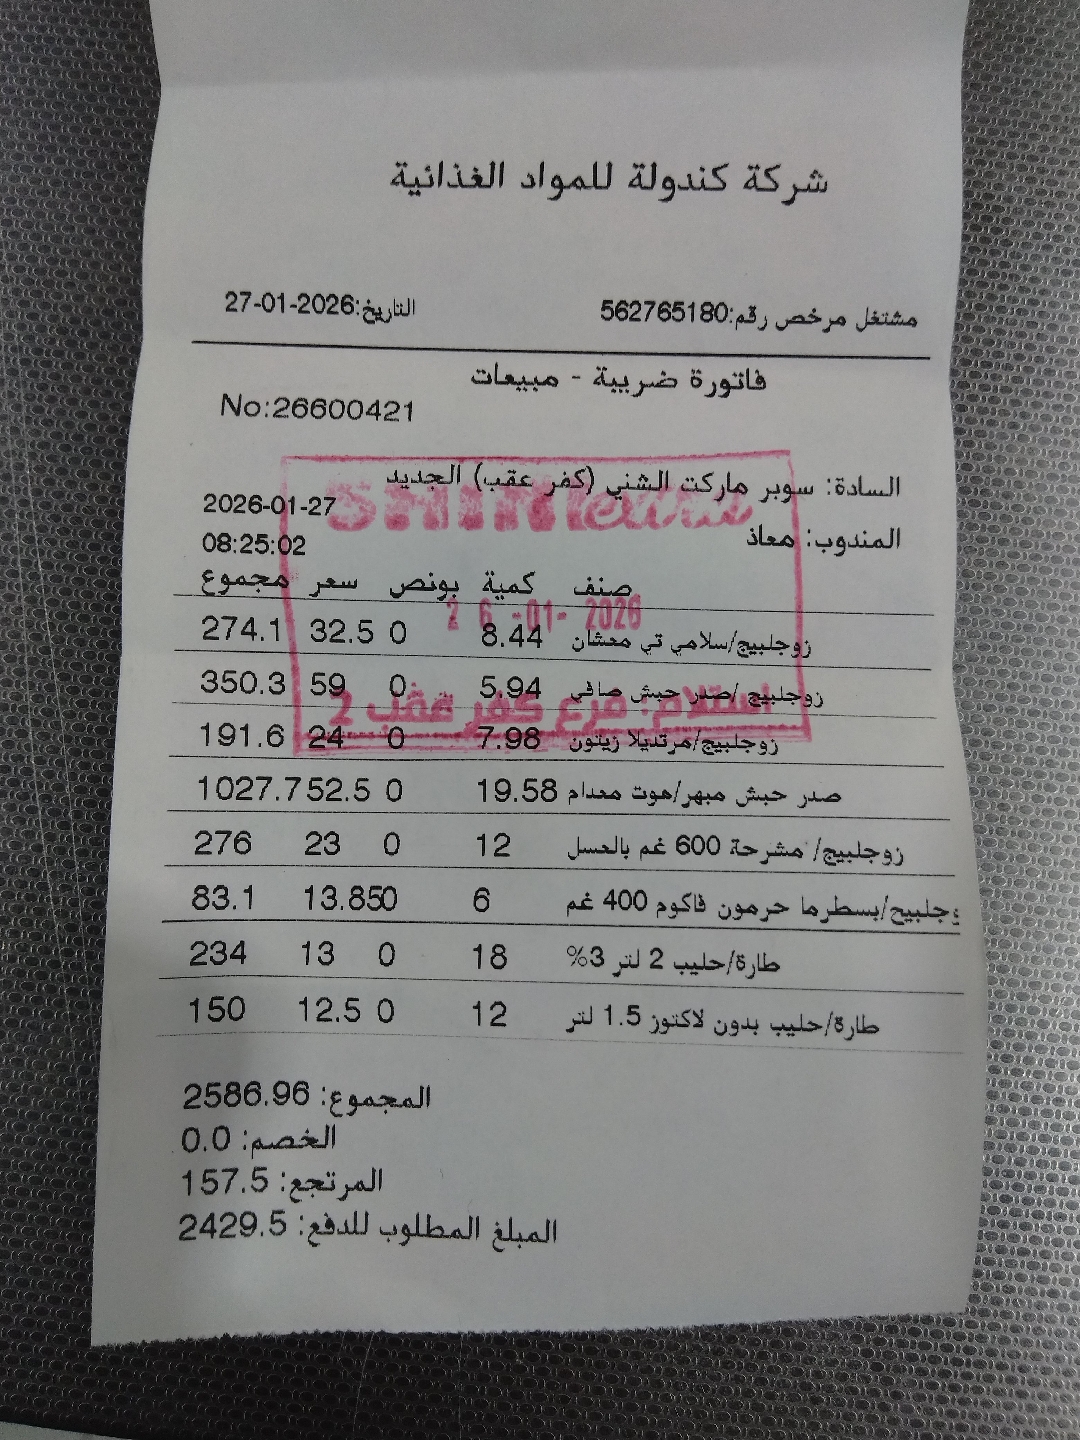 شركة كندولة للمواد الغذائية
مشتغل مرخص رقم:562765180 التاريخ:27-01-2026
فاتورة ضريبة - مبيعات
No:26600421
السادة: سوبر ماركت الشني (كفر عقب) الجديد
2026-01-27
المندوب: معاذ
08:25:02
صنف كمية بونص سعر مجموع
26 -01- 2026
زوجلبيج/سلامي تي معشان 8.44 0 32.5 274.1
زوجلبيج /صدر حبش صافي 5.94 0 59 350.3
استلام: فرع كفر عقب 2
زوجلبيج/مرتديلا زيتون 7.98 0 24 191.6
صدر حبش مبهر/هوت معدام 19.58 0 52.5 1027.7
زوجلبيج/ مشرحة 600 غم بالعسل 12 0 23 276
وجلبيج/بسطرما حرمون فاكوم 400 غم 6 0 13.85 83.1
طارة/حليب 2 لتر 3% 18 0 13 234
طارة/حليب بدون لاكتوز 1.5 لتر 12 0 12.5 150
المجموع: 2586.96
الخصم: 0.0
المرتجع: 157.5
المبلغ المطلوب للدفع: 2429.5